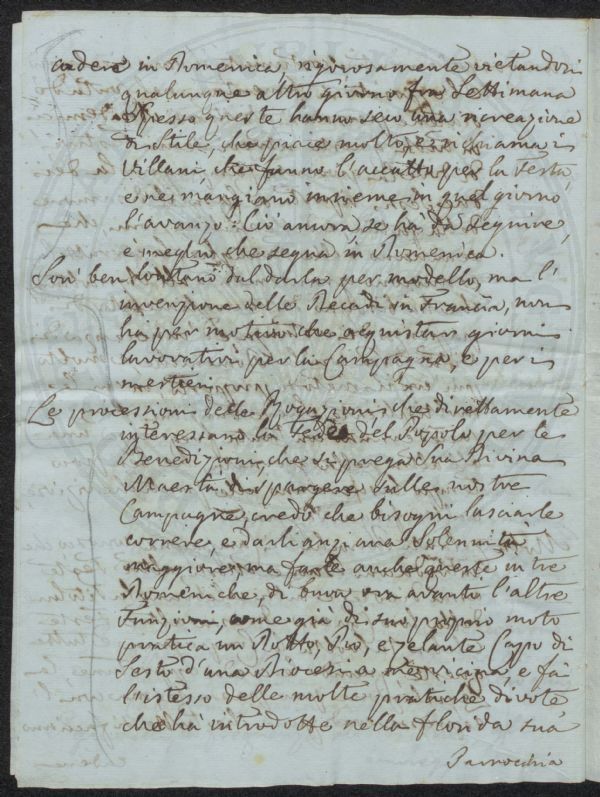 cadere in Domenica, rigorosamente vietandosi
qualunque altro giorno fra Settimana
Spesso queste hanno seco una ricreazione
di stile, che piace molto, e richiama i
Villani, che fanno l'accatto per la Festa,
e ne mangiano insieme in quel giorno
l'avanzo. Ciò ancora se ha da seguire,
è meglio che segua in Domenica.
Son' ben lontano dal darla per modello, ma l'
invenzione delle Decadi in Francia, non
ha per motivo che acquistar giorni
lavorativi per la Campagna, e per i
mestieri.
Le processioni delle Rogazioni che direttamente
interessano la Fede del Popolo per le
Benedizioni, che si prega Sua Divina
Maestà di spargere sulle nostre
Campagne, credo che bisogni lasciarle
correre e darli anzi una solennità
maggiore, ma farle anche queste in tre
Domeniche, di buon ora avanti l'altre
Funzioni, come già di suo proprio moto
pratica un Dotto, Pio, e zelante Capo di
Sesto d'una Diocesi vicina, e fà
l'istesso delle molte pratiche divote
che ha introdotte nella florida sua
Parrocchia